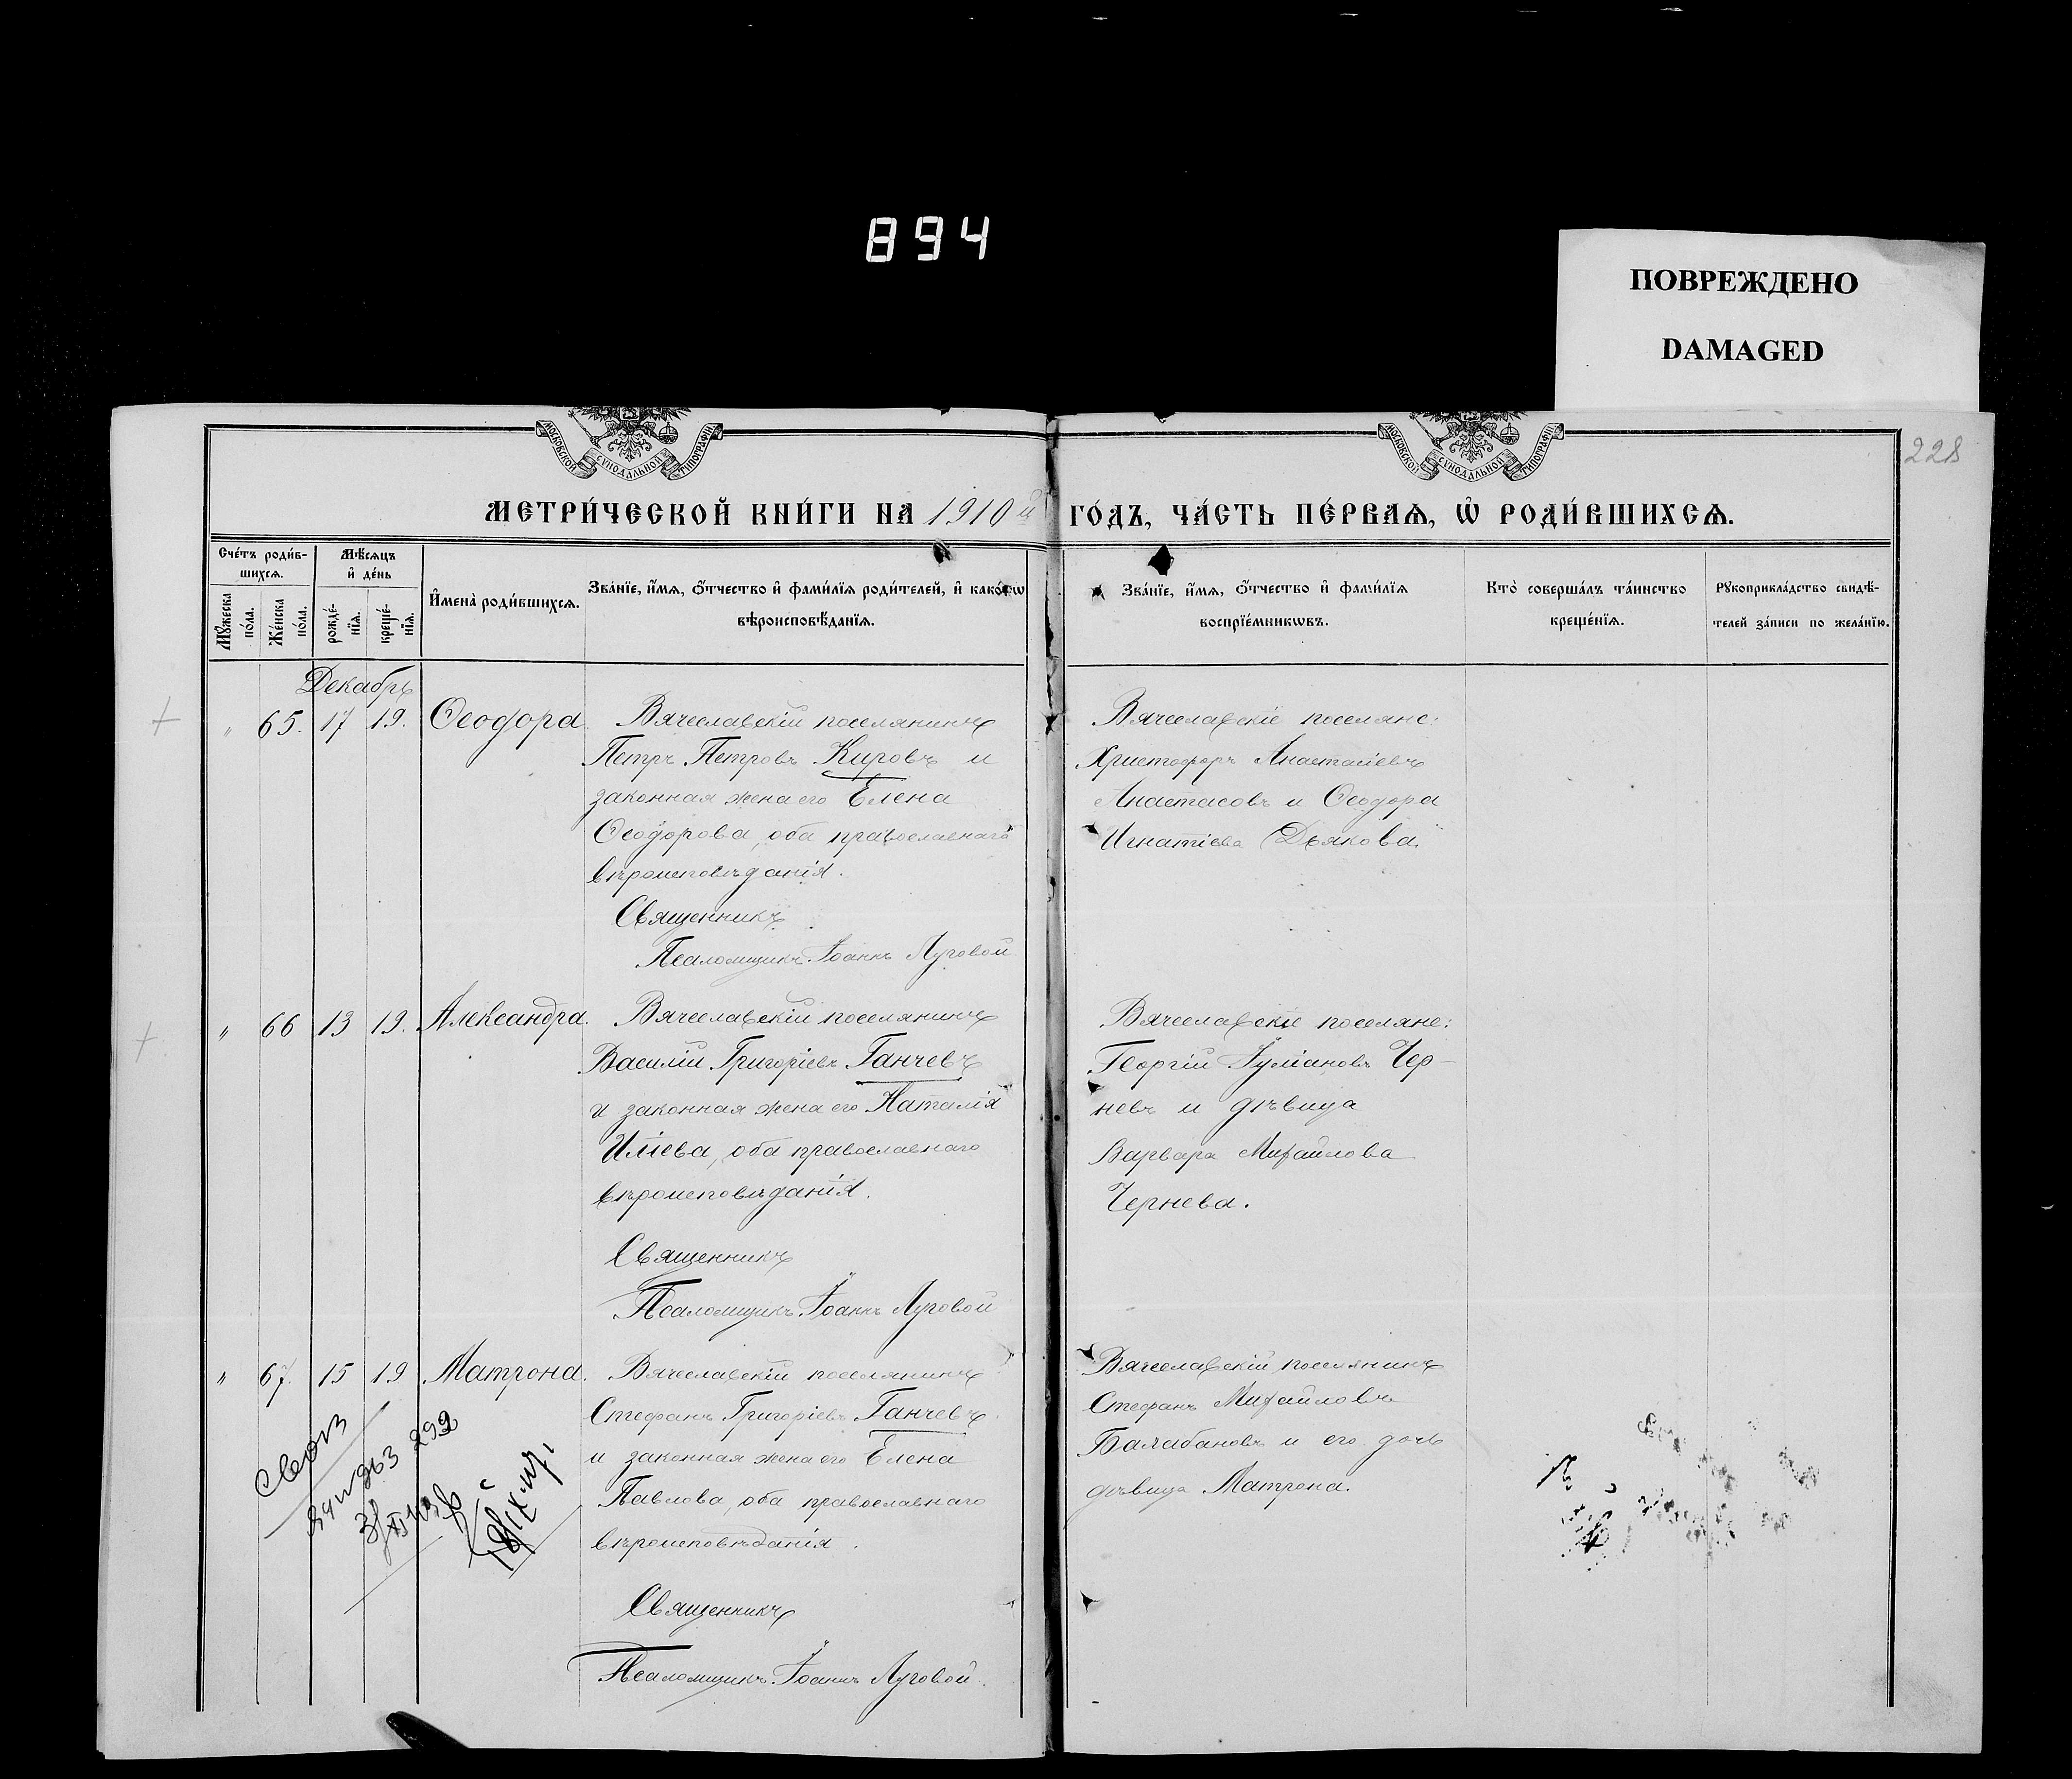 894
ПОВРЕЖДЕНО
DAMAGED
МОСКОВСКОЙ СУНОДАЛЬНОЙ ТИПОГРАФІИ
МОСКОВСКОЙ СУНОДАЛЬНОЙ ТИПОГРАФІИ
228
МЕТРИ́ЧЕСКОЙ КНИ́ГИ НА 1910 й ГО́ДЪ, ЧА́СТЬ ПЕ́РВАѦ, Ѡ҆ РОДИ́ВШИХСѦ.
Сче́тъ роди́в-
шихсѧ.
Мꙋ́жеска по́ла.
Же́нска по́ла.
Мѣ́сѧцъ
и҆ де́нь
рожде́-
нїѧ.
креще́-
нїѧ.
И҆мена̀ роди́вшихсѧ.
Зва́нїе, и҆́мѧ, ѻ҆́тчество и҆ фами́лїѧ роди́телей, и҆ како́гѡ
вѣроисповѣ́данїѧ.
Зва́нїе, и҆́мѧ, ѻ҆́тчество и҆ фами́лїѧ
воспрїе́мникѡвъ.
Кто̀ соверша́лъ та́инство
креще́нїѧ.
Рꙋкоприкла́дство свидѣ́-
телей за́писи по жела́нїю.
Декабрь
„ 65. 17 19. Ѳеодора
Вячеславскій поселянинъ
Петръ Петровъ Кировъ и
законная жена его Елена
Ѳеодорова, оба православнаго
вѣроисповѣданія.
Священникъ
Псаломщикъ Іоаннъ Луговой
Вячеславскіе поселяне:
Христофоръ Анастасіевъ
Анастасовъ и Ѳеодора
Игнатіева Дьякова.
„ 66 13 19. Александра.
Вячеславскій поселянинъ
Василій Григоріевъ Ганчевъ
и законная жена его Наталія
Иліева, оба православнаго
вѣроисповѣданія.
Священникъ
Псаломщикъ Іоаннъ Луговой
Вячеславскіе поселяне:
Георгій Іуліановъ Чер-
невъ и дѣвица
Варвара Михайлова
Чернева.
„ 67. 15 19 Матрона.
Вячеславскій поселянинъ
Стефанъ Григоріевъ Ганчевъ
и законная жена его Елена
Павлова, оба православнаго
вѣроисповѣданія.
Священникъ
Псаломщикъ Іоаннъ Луговой.
Вячеславскій поселянинъ
Стефанъ Михайловъ
Балабановъ и его дочь
дѣвица Матрона.